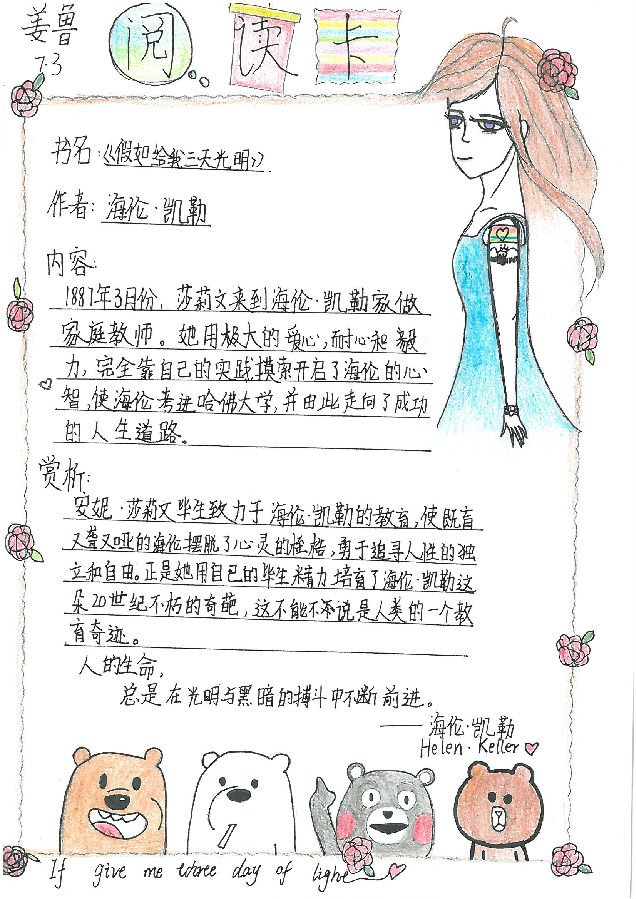 姜鲁
7.3
阅读卡
书名:《假如给我三天光明》
作者:海伦·凯勒
内容:
1887年3月份，莎莉文来到海伦·凯勒家做
家庭教师。她用极大的爱心，耐心和毅
力，完全靠自己的实践摸索开启了海伦的心
智，使海伦考进哈佛大学，并由此走向了成功
的人生道路。
赏析:
安妮·莎莉文毕生致力于海伦·凯勒的教育，使既盲
又聋又哑的海伦摆脱了心灵的桎梏，勇于追寻人性的独
立和自由。正是她用自己的毕生精力培育了海伦·凯勒这
朵20世纪不朽的奇葩，这不能不说是人类的一个教
育奇迹。
人的生命，
总是在光明与黑暗的搏斗中不断前进。
——海伦·凯勒
Helen·Keller
If give me three day of light